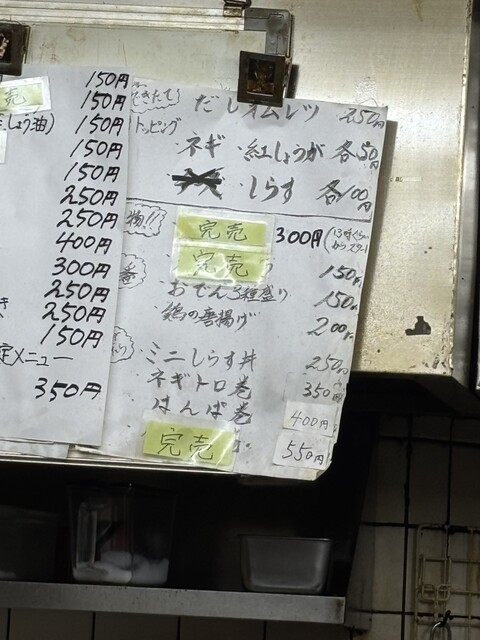 150円
売 150円
しょう油) 150円
150円
150円
250円
250円
400円
300円
250円
250円
150円
定メニュー
350円
できたて! だしオムレツ 250円
トッピング
・ネギ ・紅しょうが 各50円
・しらす 各100円
物!! 完売 300円 (13時ぐらい
完売 150円
おでん3種盛り 150円
鶏の唐揚げ 200円
ミニしらす丼 250円
ネギトロ巻 350円
はんぱ巻 400円
完売 550円